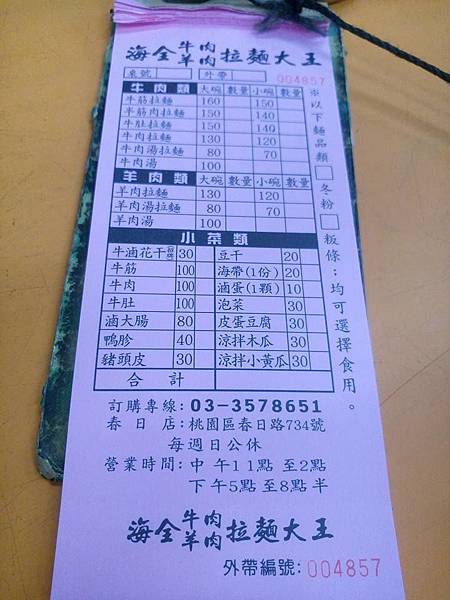 海全牛肉羊肉拉麵大王
桌號 外帶 004857
牛肉類 大碗 數量 小碗 數量
牛筋拉麵 160 150
半筋肉拉麵 150 140
牛肚拉麵 150 140
牛肉拉麵 130 120
牛肉湯拉麵 80 70
牛肉湯 100
羊肉類 大碗 數量 小碗 數量
羊肉拉麵 130 120
羊肉湯拉麵 80 70
羊肉湯 100
※以下麵品類□冬粉□粄條：均可選擇食用。
小菜類
牛滷花干 30 豆干 20
牛筋 100 海帶(1份) 20
牛肉 100 滷蛋(1顆) 10
牛肚 100 泡菜 30
滷大腸 80 皮蛋豆腐 30
鴨胗 40 涼拌木瓜 30
豬頭皮 30 涼拌小黃瓜 30
合計
訂購專線: 03-3578651
春日店: 桃園區春日路734號
每週日公休
營業時間: 中午11點至2點
下午5點至8點半
海全牛肉羊肉拉麵大王
外帶編號: 004857